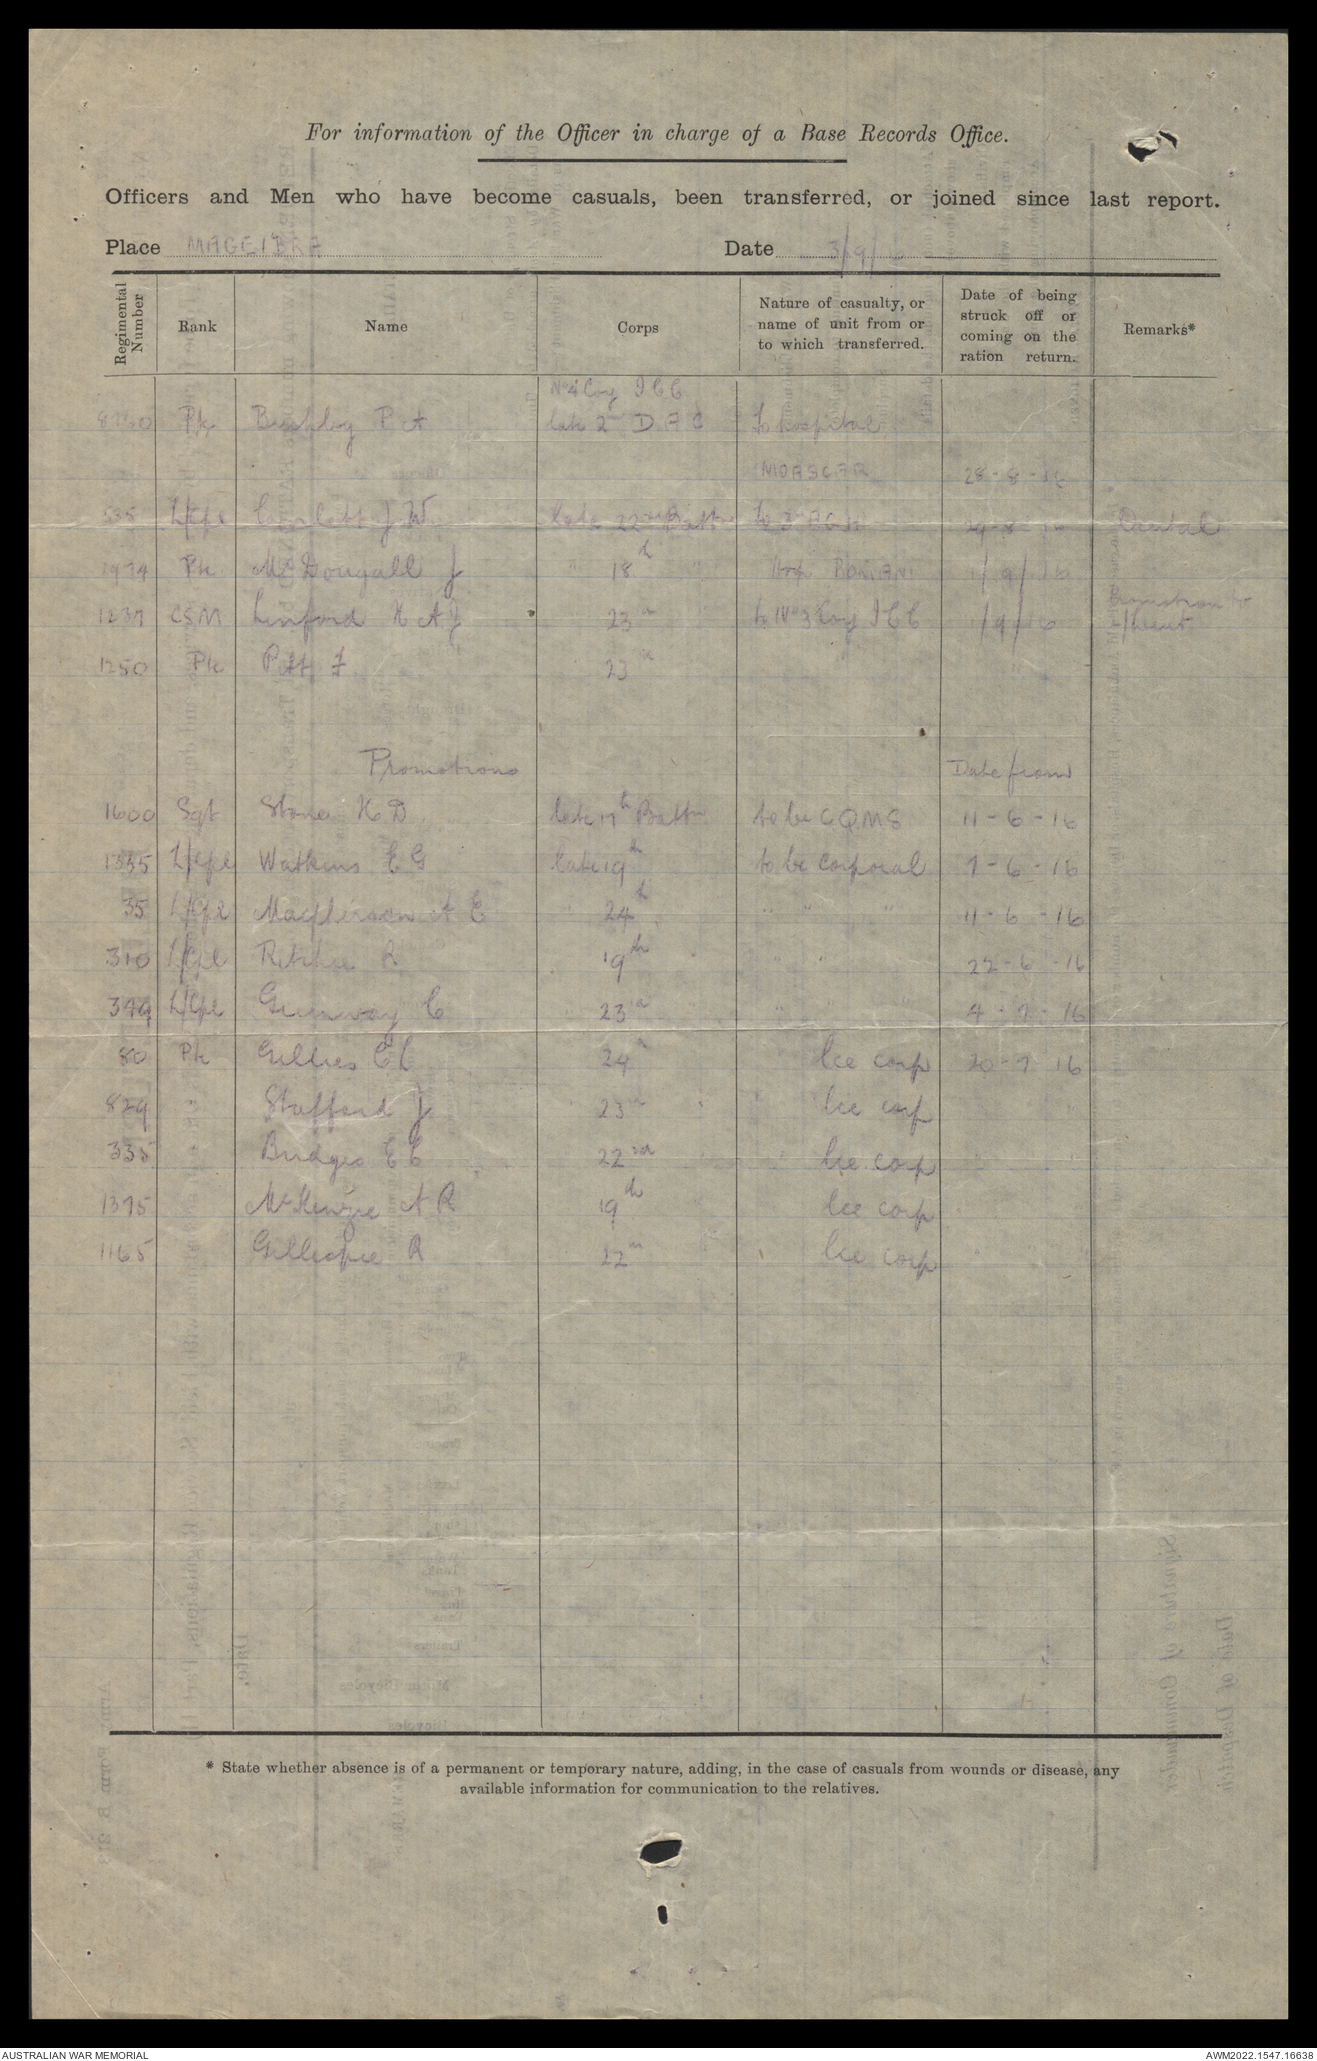 For information of the Officer in charge of a Base Records Office.
Officers and Men who have become casuals, been transferred, or joined since last report.
Place MAGEIBRA Date 3/9/16
Regimental Number
Rank
Name
Corps
Nature of casualty, or name of unit from or to which transferred.
Date of being struck off or coming on the ration return.
Remarks*
No 4 Coy I C C
Pte Bushby P A late 2nd D A C To hospital
MOASCAR 28-8-16
L/Cpl J W late 22nd Battn to 3rd AGH 29-8-16 Dental
1974 Pte McDougall J " 18th " Hosp ROMANI 1/9/16
1237 CSM Linford H A J 23rd " to No 3 Coy I C C 1/9/16 Promotion to
Lieut
1250 Pte Pitt F " 23rd
Promotions Date from
1600 Sgt Stone H D late 17th Battn to be CQMS 11-6-16
1355 L/Cpl Watkins E G late 19th to be Corporal 7-6-16
35 L/Cpl Macpherson A E " 24th " " " " 11-6-16
310 L/Cpl Ritchie R 19th " " " 22-6-16
399 L/Cpl Gunway C " 23rd " " " " 4-7-16
80 Pte Gillies C L 24th " lce corp 20-7-16
829 " Stafford J " 23rd " " lce corp
335 " Bridges E C 22nd " " lce corp "
1375 McKenzie A R 19th lce corp
1165 Gillespie R 22nd lce corp
* State whether absence is of a permanent or temporary nature, adding, in the case of casuals from wounds or disease, any
available information for communication to the relatives.
AUSTRALIAN WAR MEMORIAL AWM2022.1547.16638